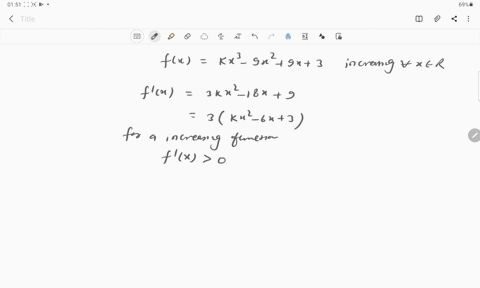 01:51
69%
Title
f(x) = Kx³ - 9x² + 9x + 3 increasing ∀ x ∈ R
f'(x) = 3Kx² - 18x + 9
= 3(Kx² - 6x + 3)
for a increasing function
f'(x) > 0